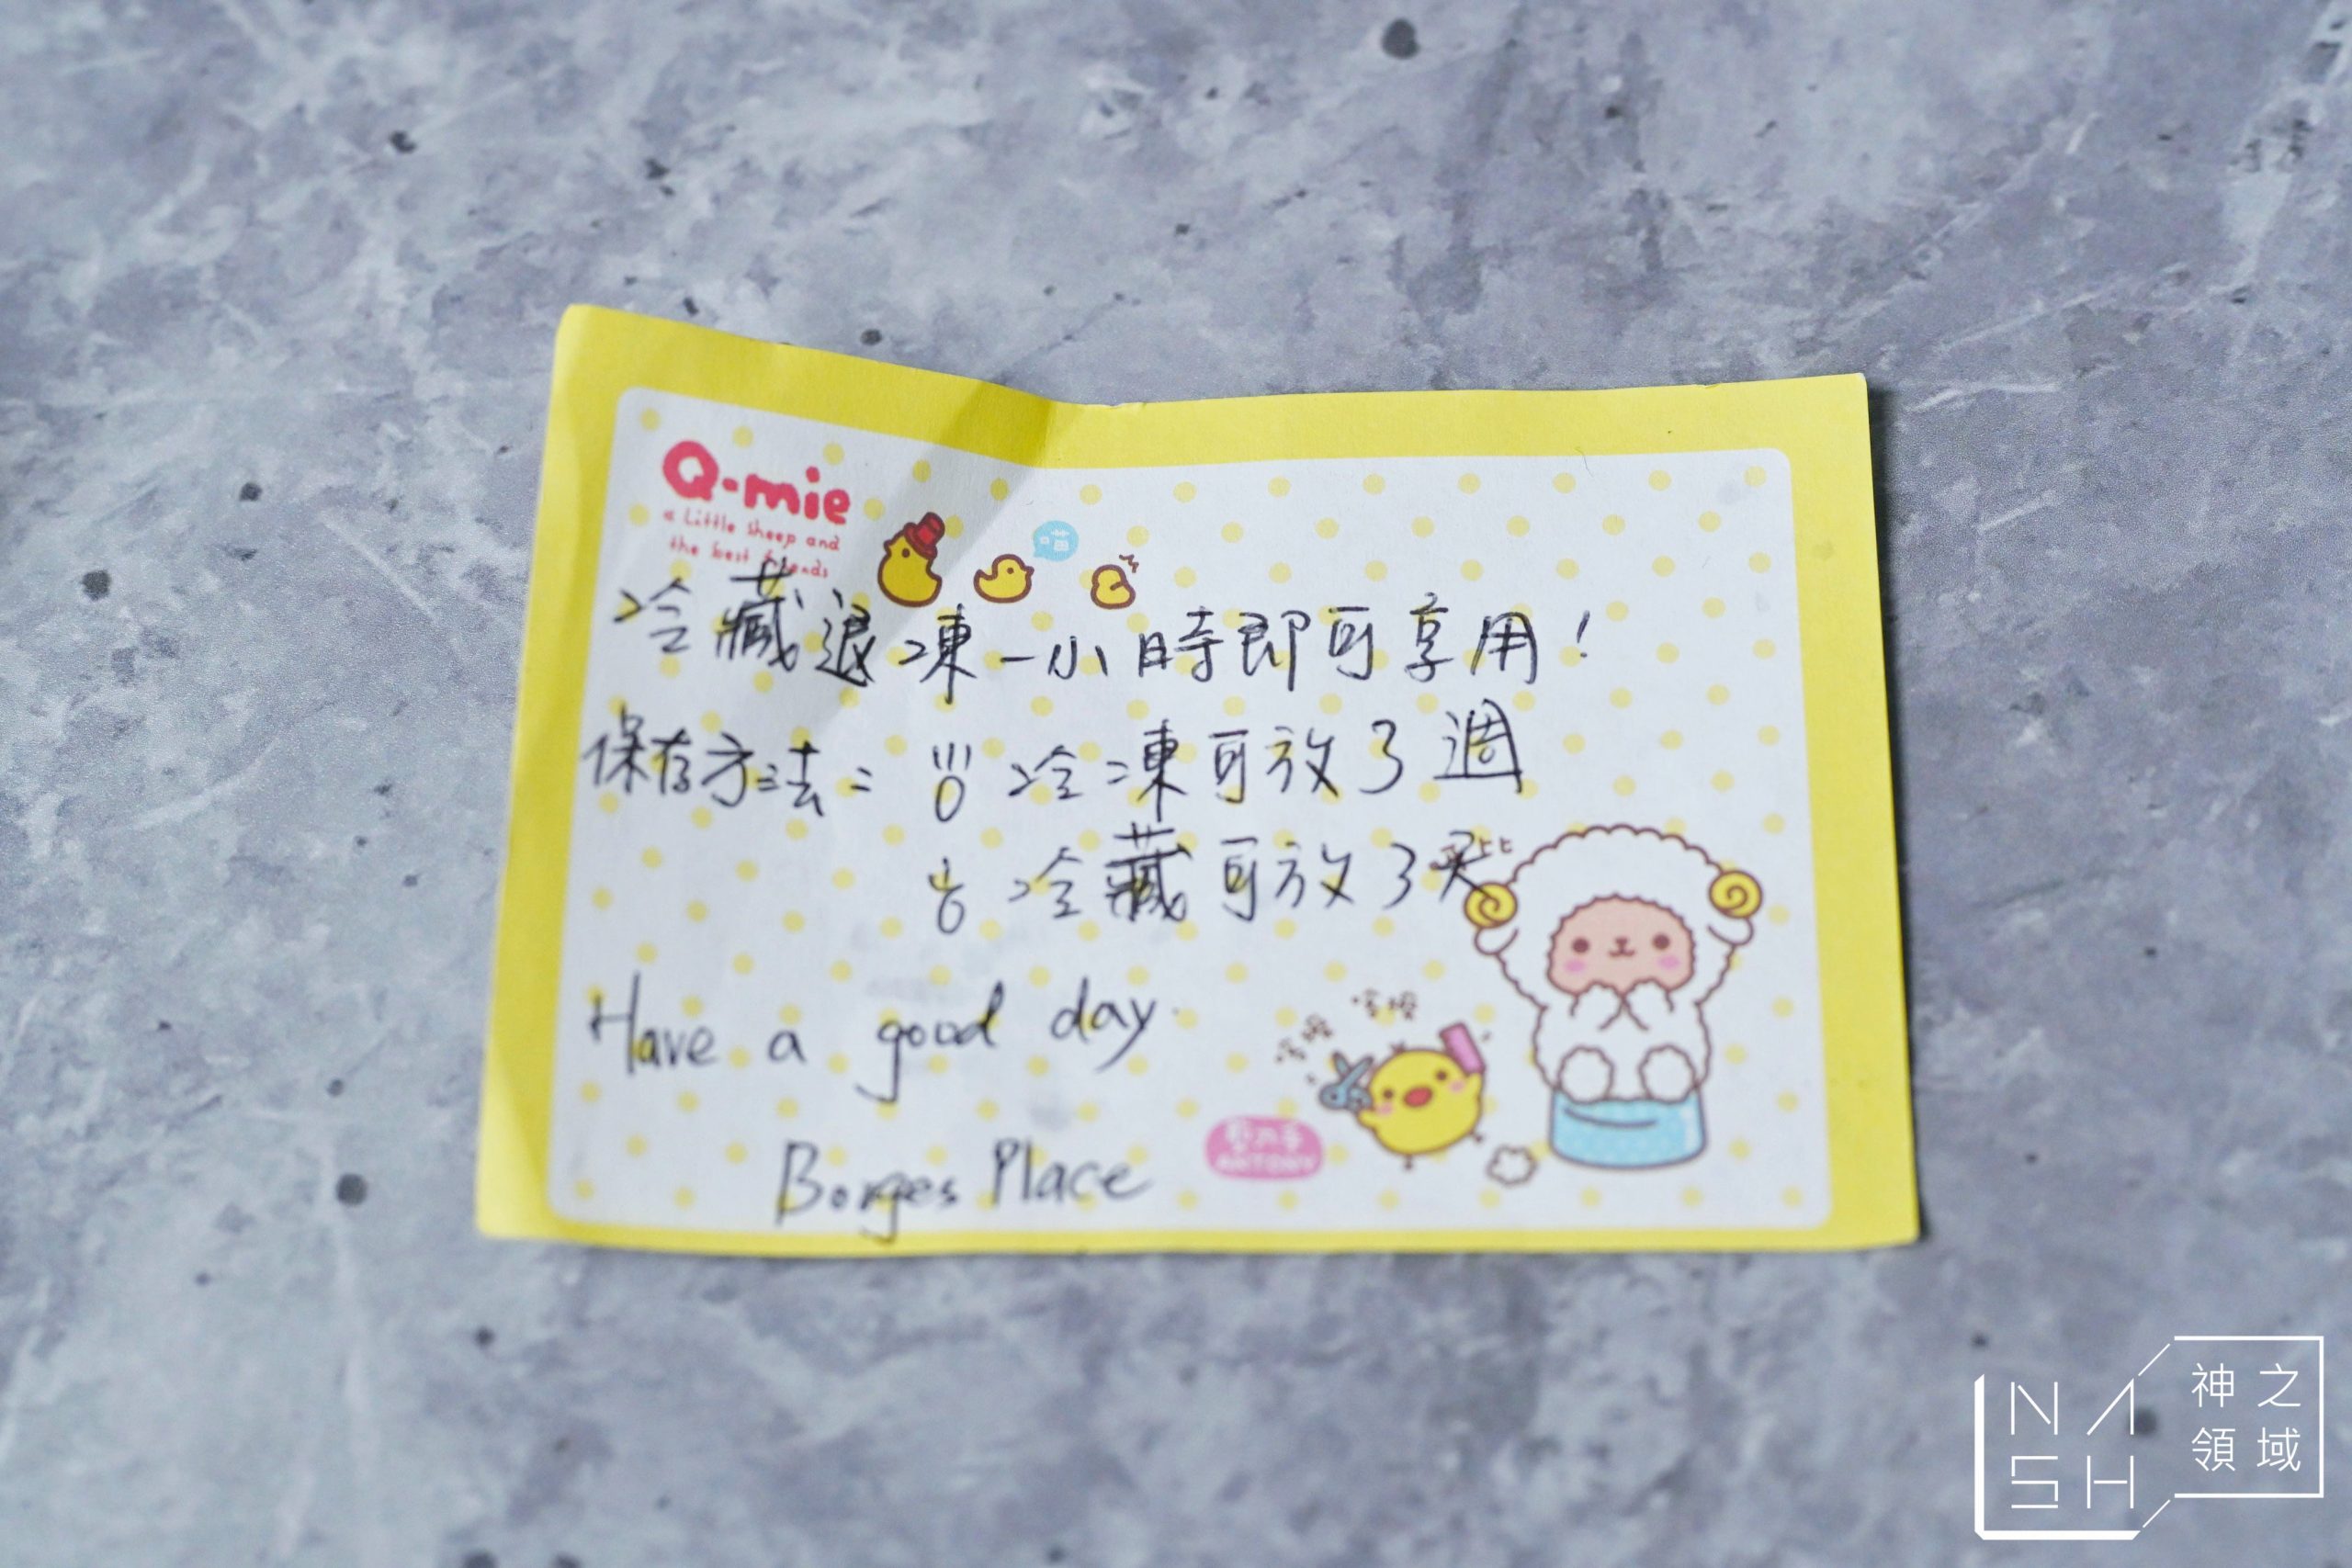 Q-mie
a little sheep and
the best friends
喵
冷藏退凍一小時即可享用！
保存方法：冷凍可放3週
冷藏可放3天
Have a good day.
Borges Place
NASH
神之
領域